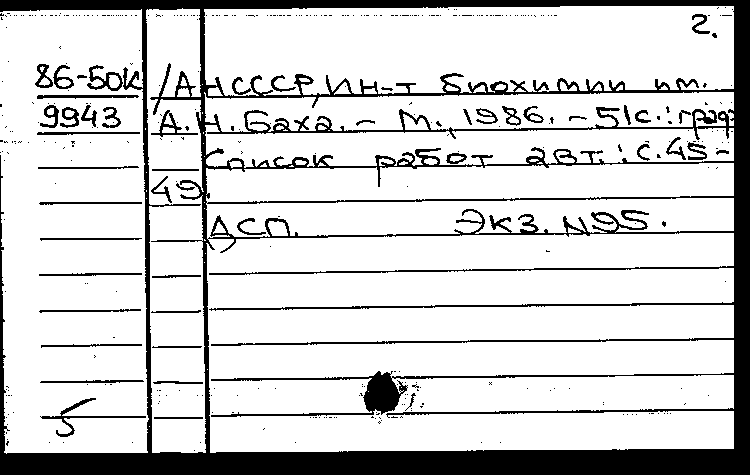 2.
86-50К /АН СССР, Ин-т биохимии им.
9943 А.Н.Баха. - М., 1986. - 51с.:граф.
Список работ авт.: с.45-
49.
ДСП. Экз. N95.
5